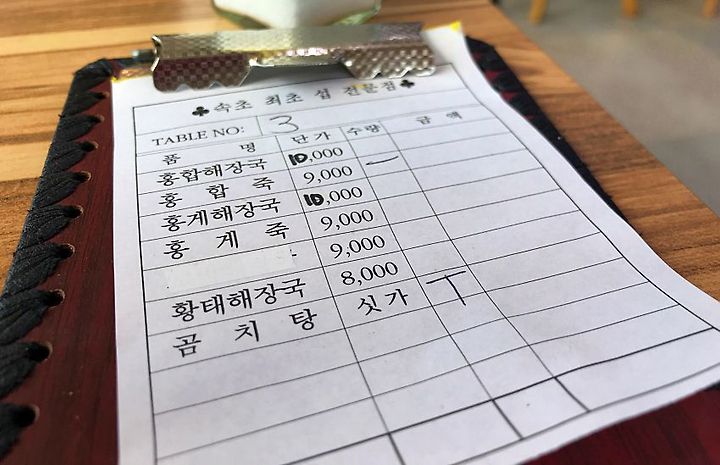 ♣속초 최초 섭 전문점♣
TABLE NO: 3
품 명 단가 수량 금 액
홍합해장국 10,000 一
홍 합 죽 9,000
홍게해장국 10,000
홍 게 죽 9,000
9,000
황태해장국 8,000
곰 치 탕 싯가 T